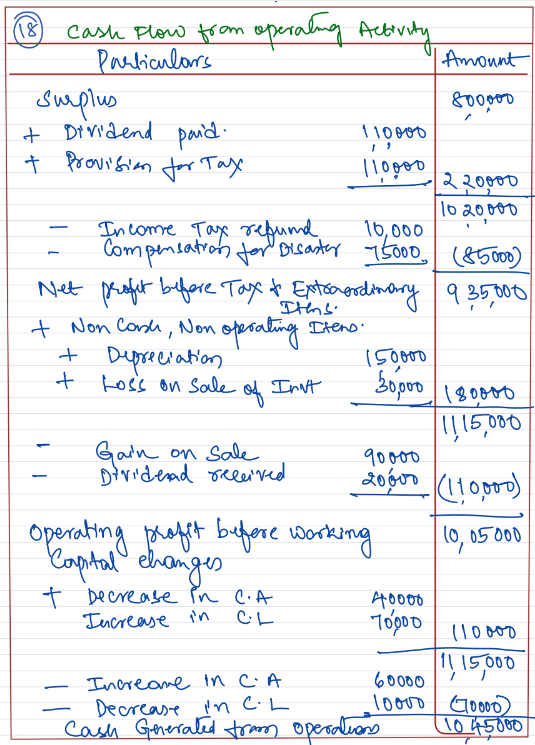 18 Cash Flow from operating Activity
Particulars Amount
Surplus 800,000
+ Dividend paid. 110,000
+ Provision for Tax 110,000 2,20000
10 20,000
- Income Tax refund 10,000
- Compensation for Disaster 75000 (85000)
Net profit before Tax & Extraordinary 9 35,000
Items.
+ Non Cash, Non operating Items.
+ Depreciation 150,000
+ Loss on Sale of Invt 30,000 180,000
11,15,000
- Gain on Sale 90000
- Dividend received 20,000 (110,000)
Operating profit before working 10,05000
Capital changes
+ Decrease in C.A 40000
Increase in C.L 70,000 110000
11,15,000
- Increase in C.A 60000
- Decrease in C.L 10000 (70000)
Cash Generated from operations 10,45000